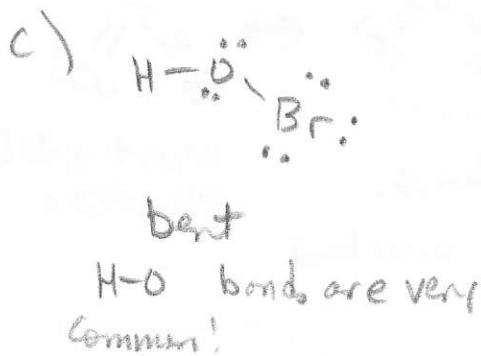 c)
H-O
Br
bent
H-O bonds are very
common!